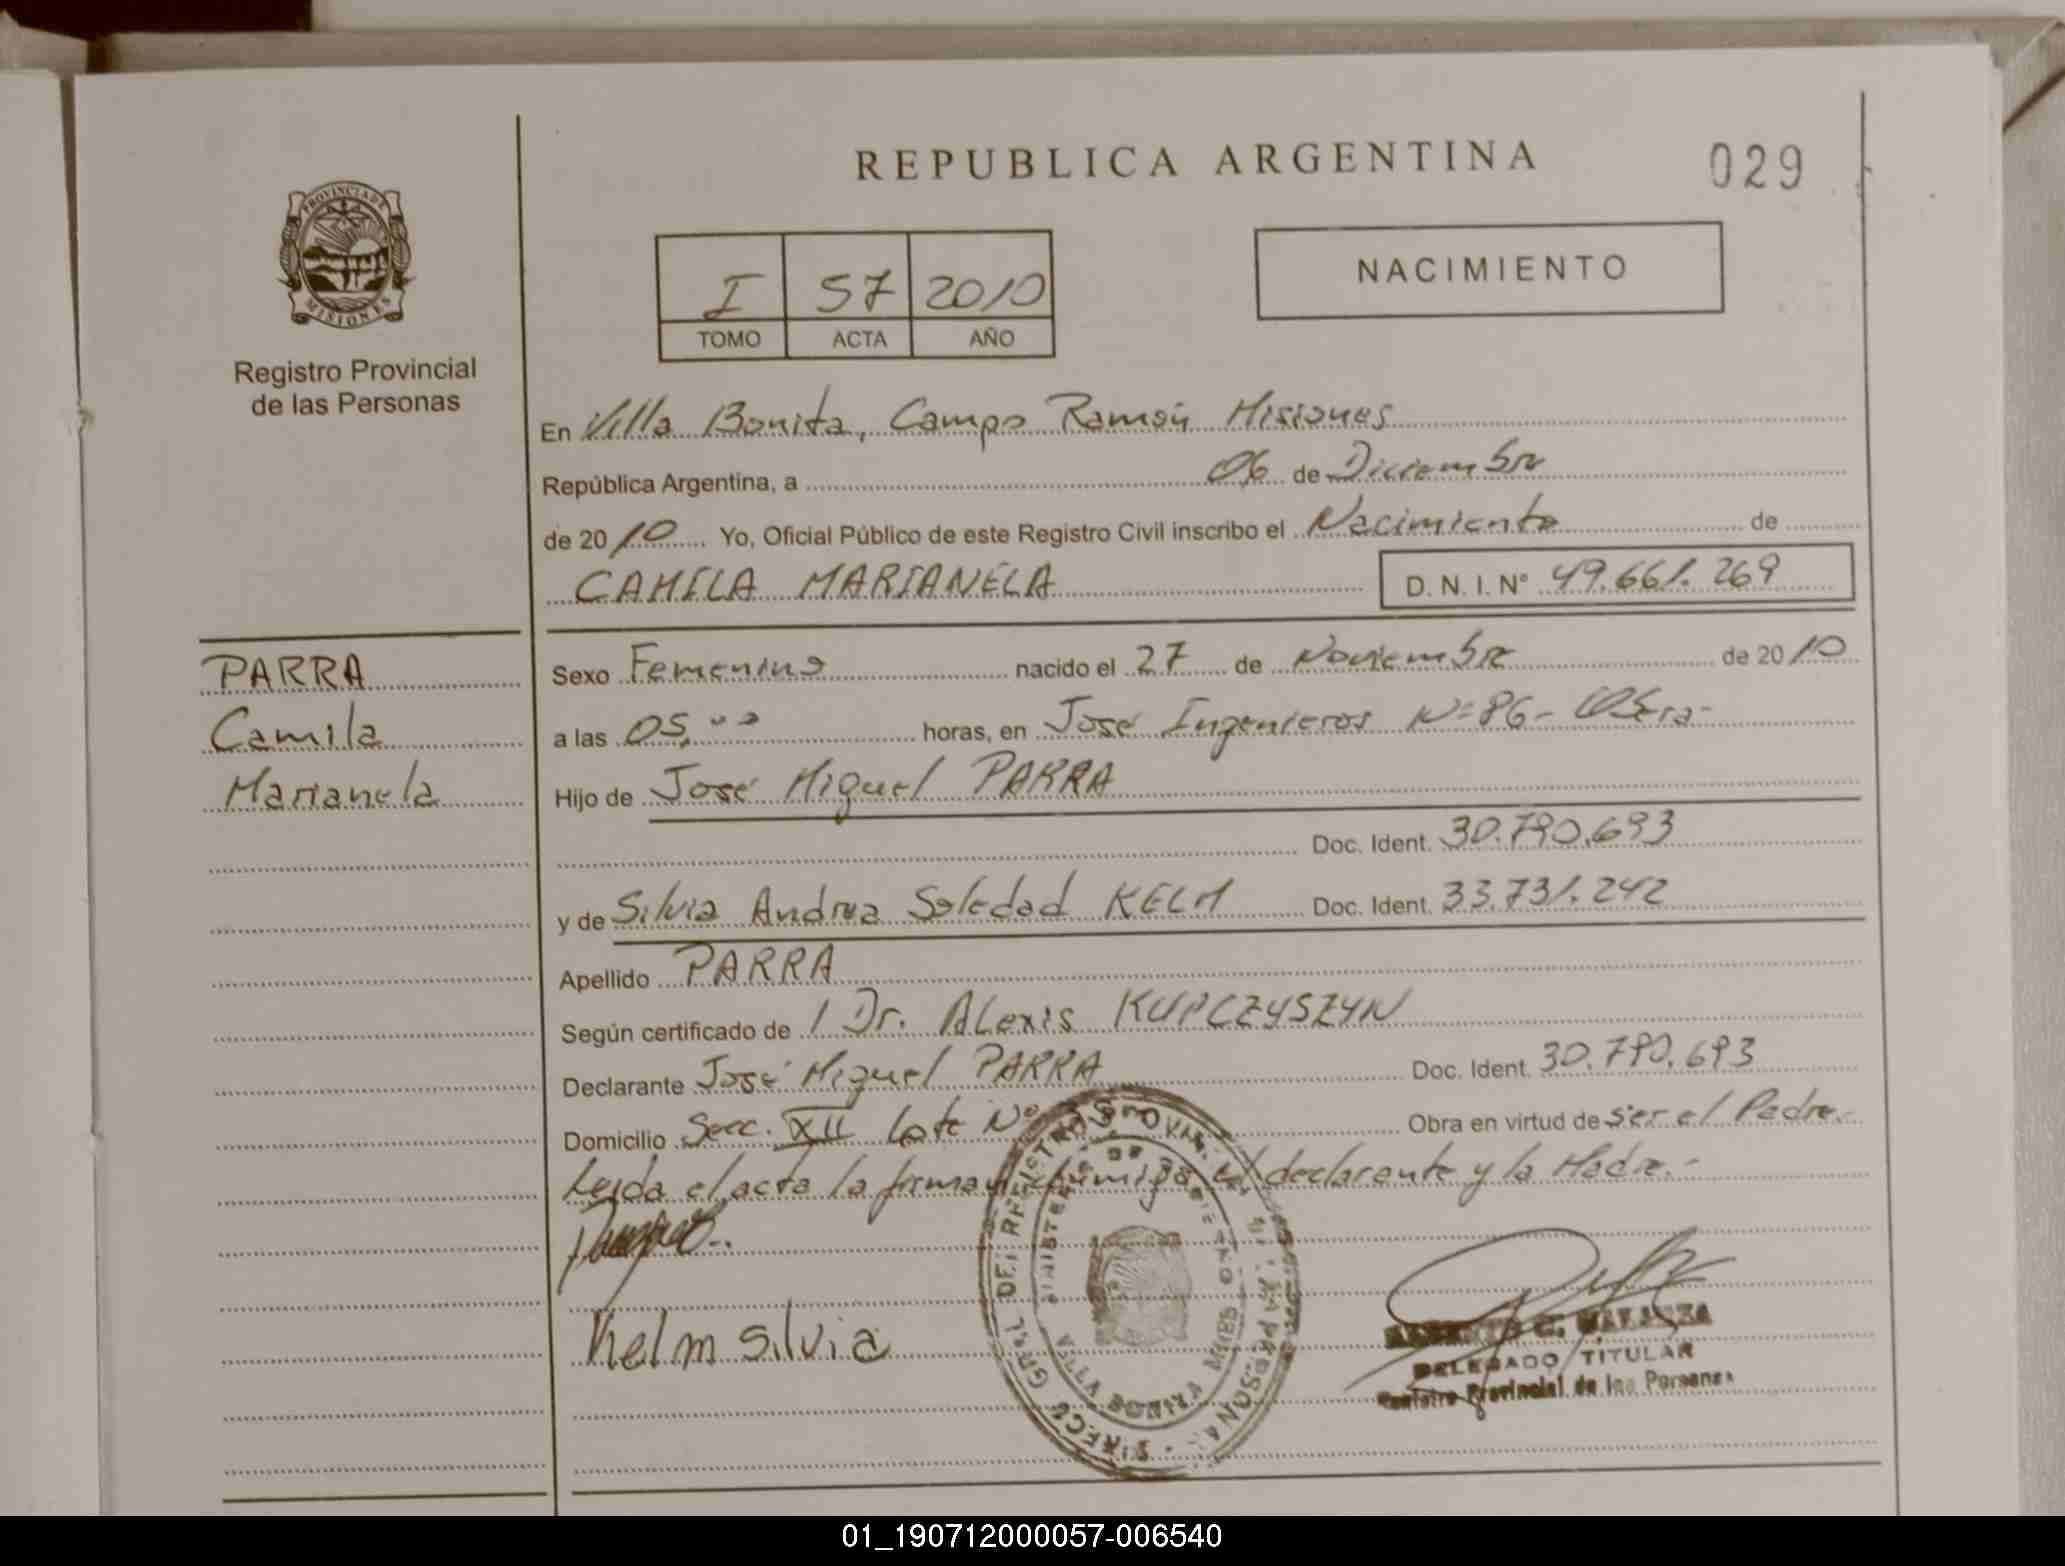 REPUBLICA ARGENTINA
029
PROVINCIA DE
MISIONES
Registro Provincial
de las Personas
I 57 2010
TOMO ACTA AÑO
NACIMIENTO
En Villa Bonita, Campo Ramón Misiones
República Argentina, a 06 de Diciembre
de 2010 Yo, Oficial Público de este Registro Civil inscribo el Nacimiento de
CAMILA MARIANELA D. N. I. N° 49.661.269
PARRA
Camila
Marianela
Sexo Femenino nacido el 27 de Noviembre de 2010
a las 05,00 horas, en José Ingenieros N=86- Oberá-
Hijo de José Miguel PARRA
Doc. Ident. 30.790.693
y de Silvia Andrea Soledad KELM Doc. Ident. 33.731.242
Apellido PARRA
Según certificado de / Dr. Alexis KUPCZYSZYN
Declarante José Miguel PARRA Doc. Ident. 30.790.693
Domicilio Secc. XII Lote N° Obra en virtud de Ser el Padre.-
Leida el acta la firman conmigo el declarante y la Madre.-
Kelm Silvia
DELEGADO TITULAR
Registro Provincial de las Personas
VILLA BONITA
01_190712000057-006540